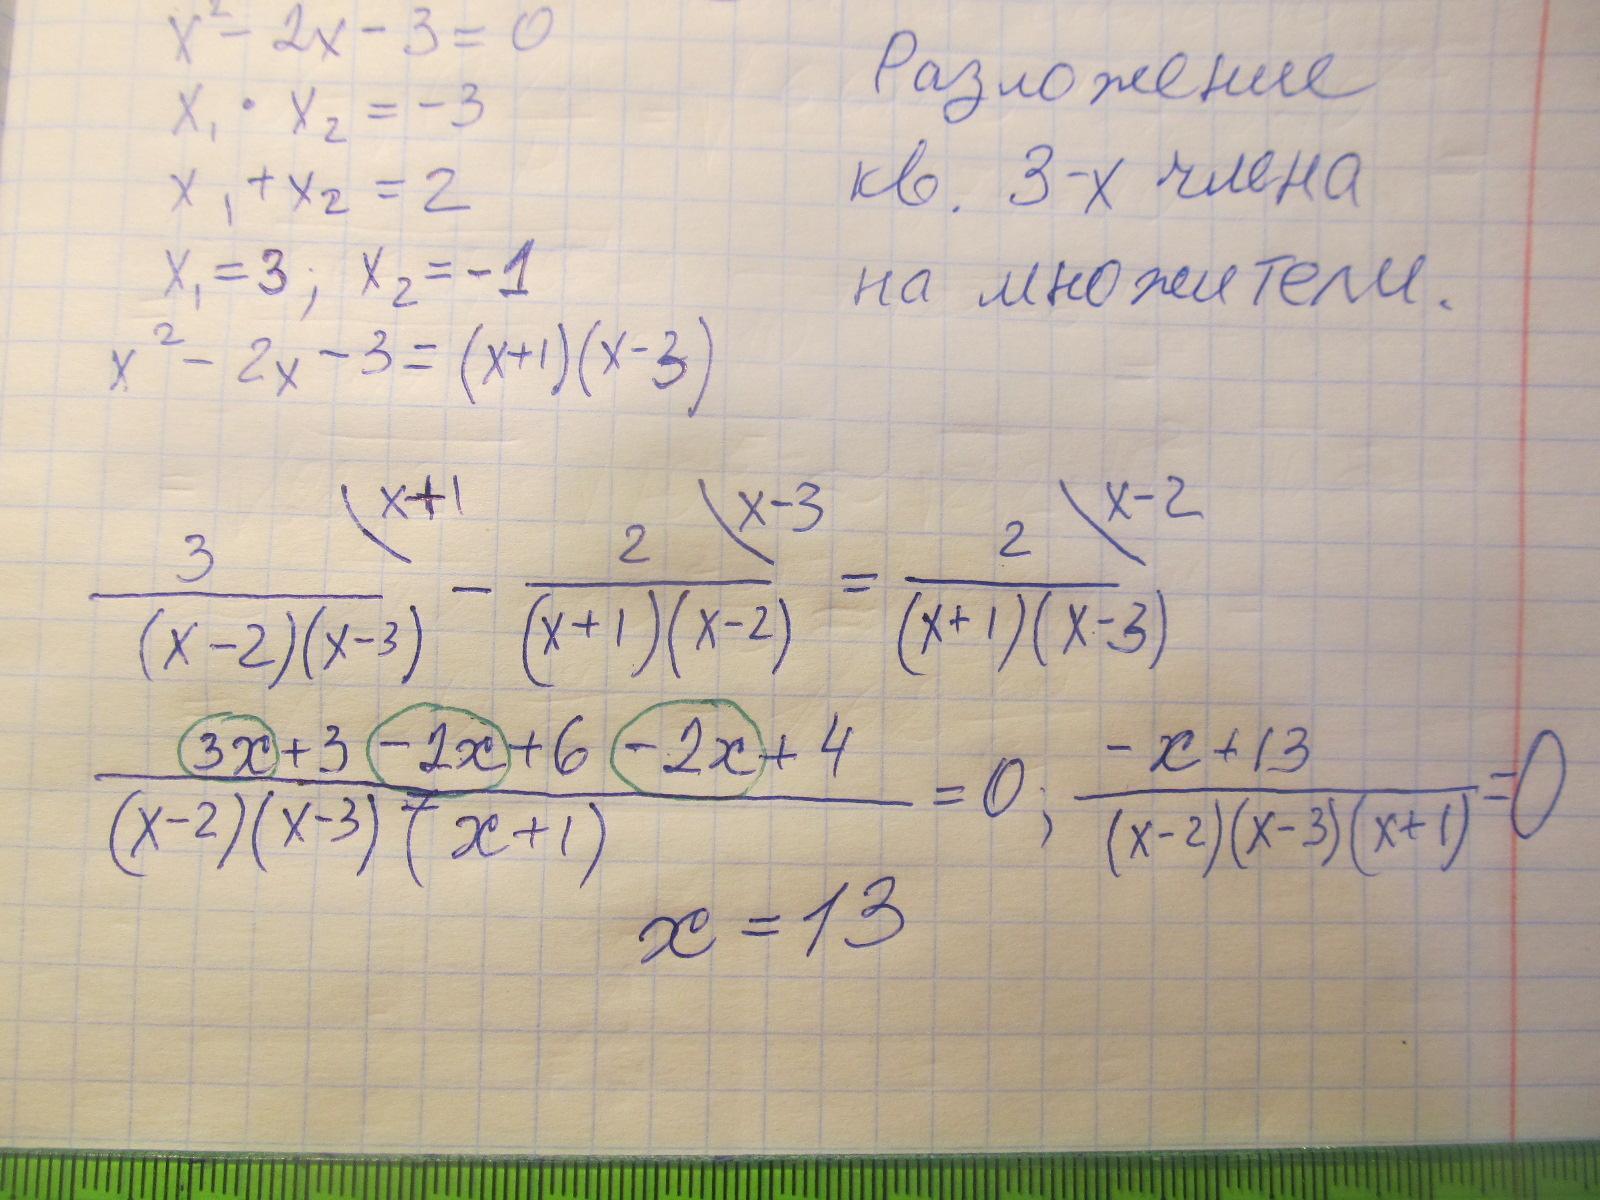 x² - 2x - 3 = 0
x₁ · x₂ = -3
x₁ + x₂ = 2
x₁ = 3; x₂ = -1
x² - 2x - 3 = (x+1)(x-3)
Разложение
кв. 3-х члена
на множители.
3 \x+1 / (x-2)(x-3) - 2 \x-3 / (x+1)(x-2) = 2 \x-2 / (x+1)(x-3)
3x+3-2x+6-2x+4 / (x-2)(x-3)(x+1) = 0; -x+13 / (x-2)(x-3)(x+1) = 0
x = 13